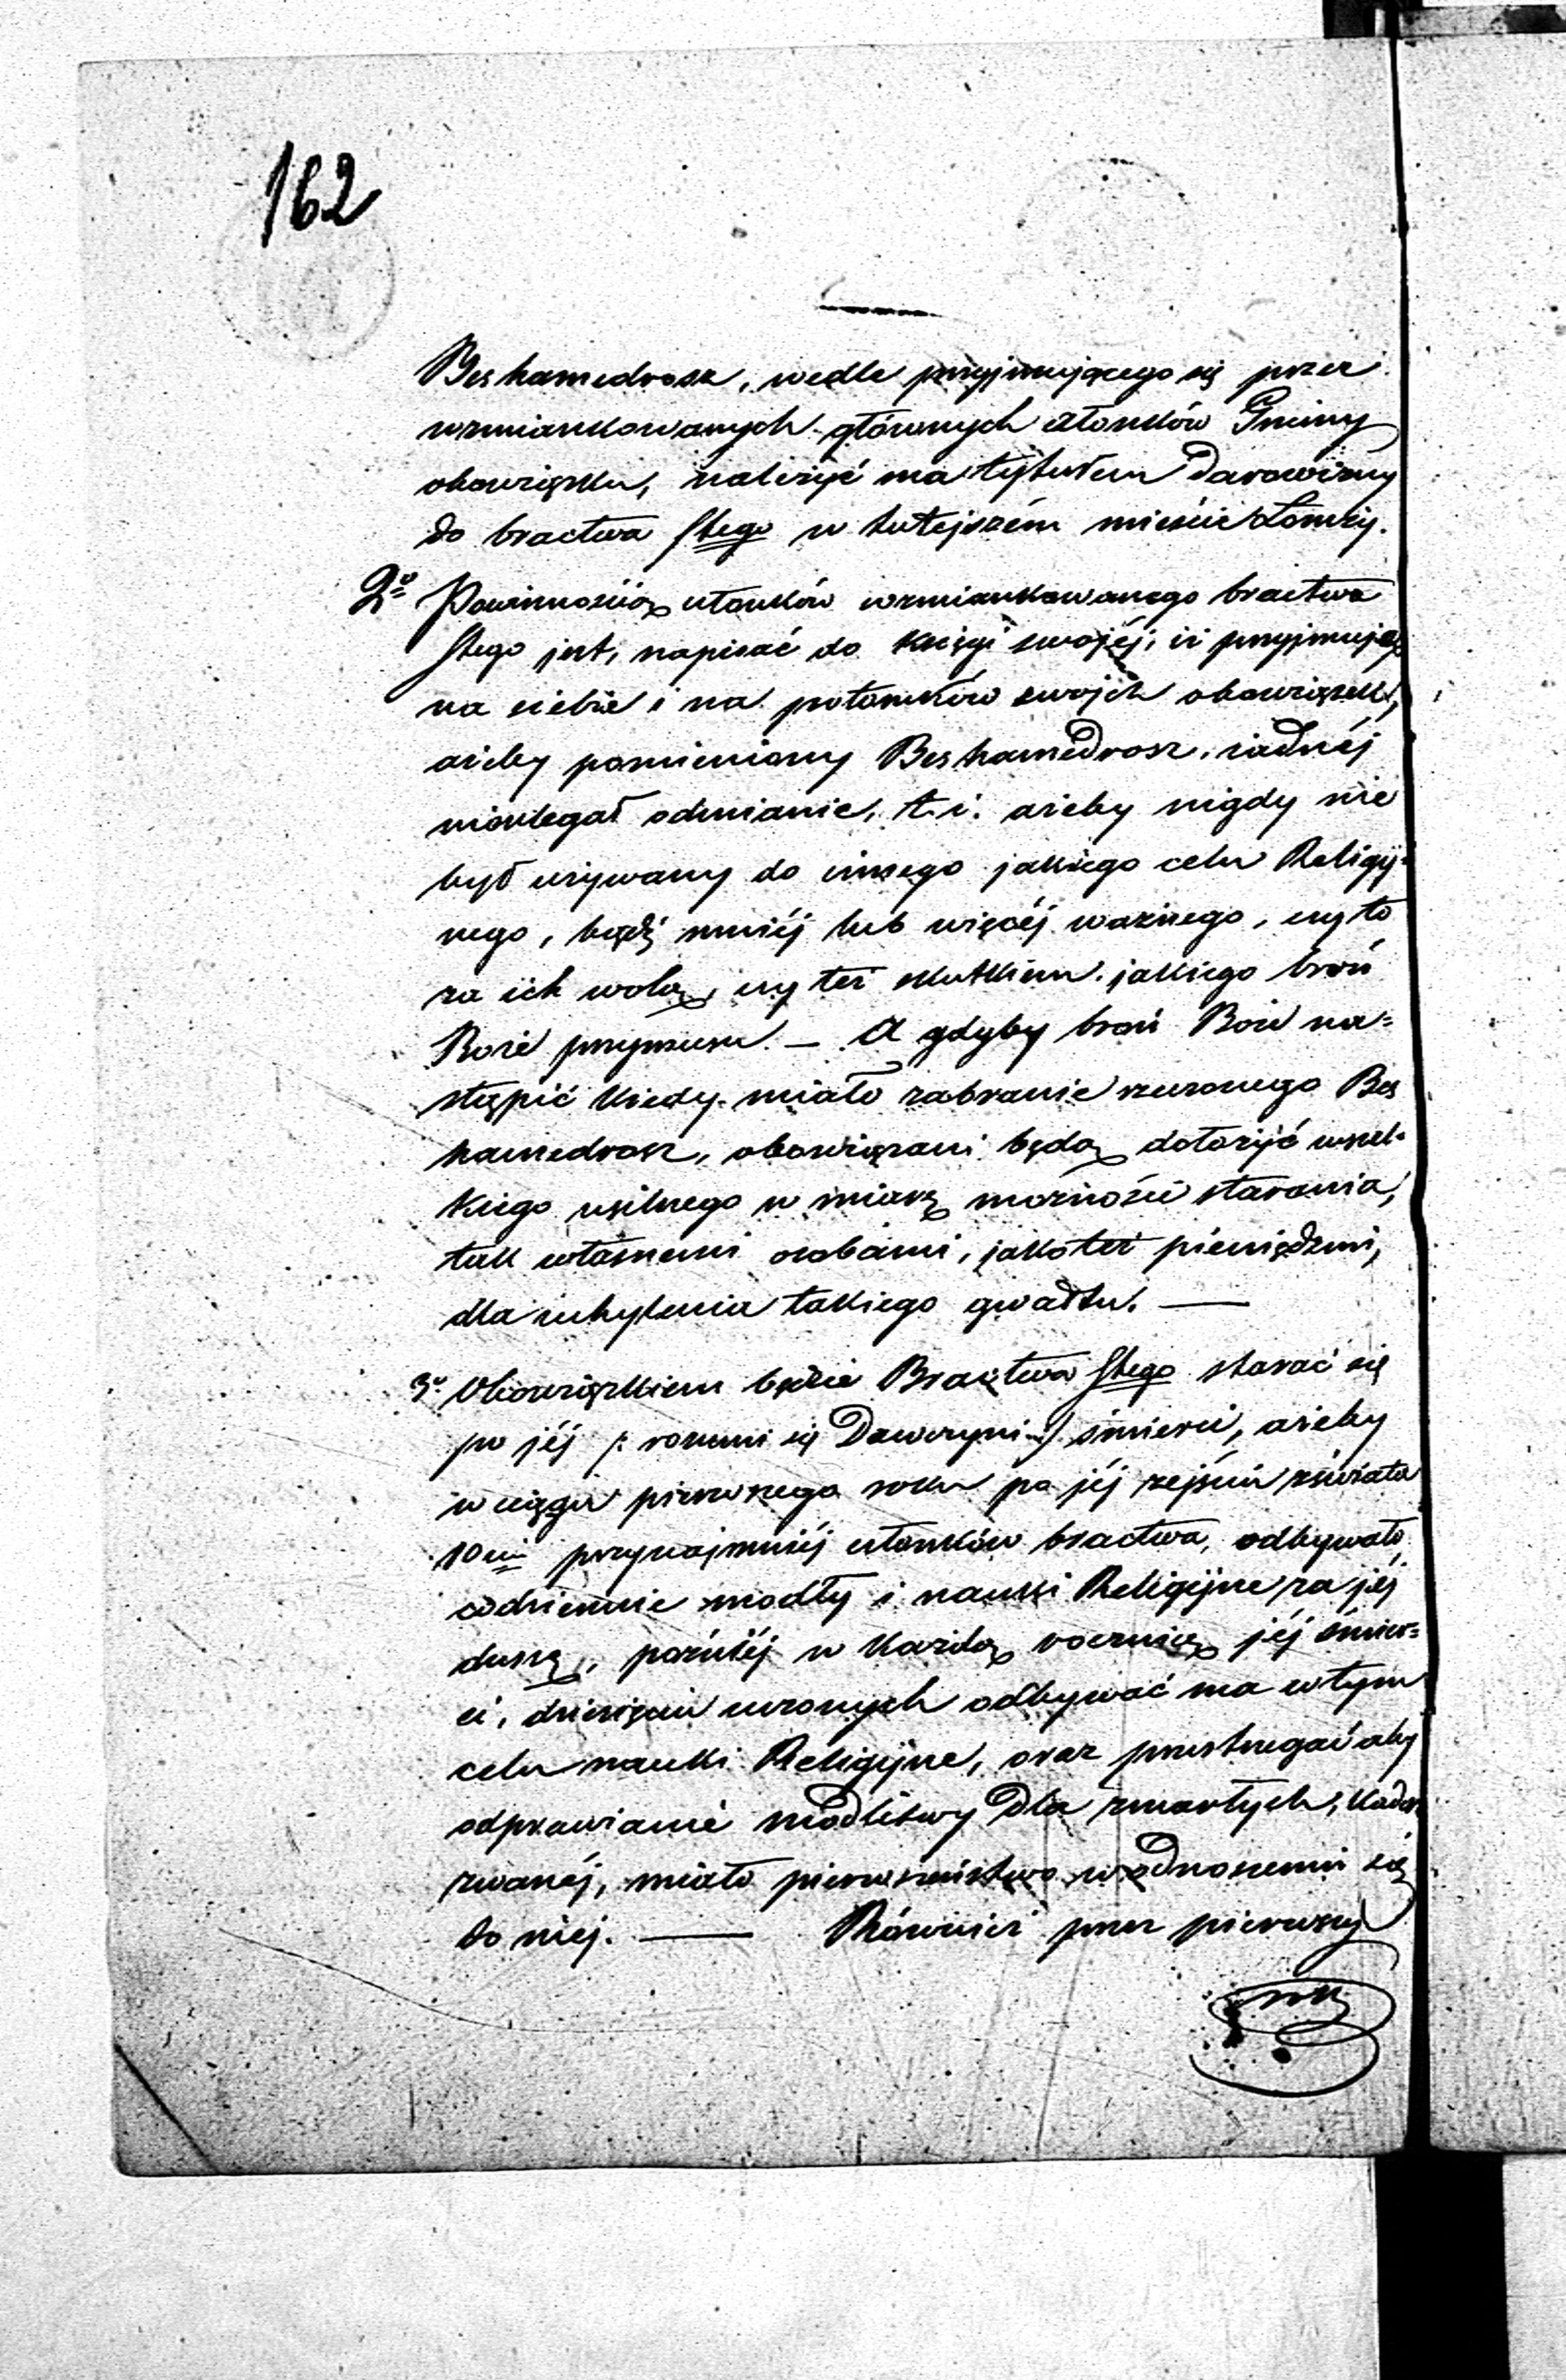 162
Beshamedrosz, wedle przyjmującego się przez
wzmiankowanych głównych członków Gminy
obowiązku, należyć ma tytułem Darowizny
do bractwa Stego w tutejszém mieście Łomży.
2º Powinnością członków wzmiankowanego bractwa
Stego jest, napisać do Księgi swojéj, iż przyjmuję
na siebie i na potomków swojch obowiązek,
ażeby pomieniony Beshamedrosz, żadnéj
nieulegał odmianie, t. i. ażeby nigdy nie
był używany do innego jakiego celu Religij-
nego, bądź mniéj lub więcéj ważnego, czy to
za ich wolą, czy też skutkiem jakiego broń
Boże przymusu. — A gdyby broń Boże na-
stąpić kiedy miało zabranie rzeczonego Bes
hamedrosz, obowiązani będą dołożyć wszel-
kiego usilnego w miarę możności starania,
tak własnemi osobami, jakoteż pieniędzmi,
dla uchylenia takiego gwałtu. —
3º Obowiązkiem będzie Bractwa Stego starać się
po jéj /: rozumi się Dawczyni :/ śmierci, ażeby
w ciągu pierwszego roku po jéj zejściu zświata
10ciu przynajmniéj członków bractwa, odbywało
codziennie modły i nauki Religijne za jéj
duszę, późniéj w każdą rocznicę jéj śmier-
ci, dziesięciu uczonych odbywać ma w tym
celu nauki Religijne, oraz przestrzegać aby
odprawianie modlitwy dla zmarłych, Kadysz
zwanéj, miało pierwszeństwo w odnoszeniu się
do niej. — Również przez pierwszy